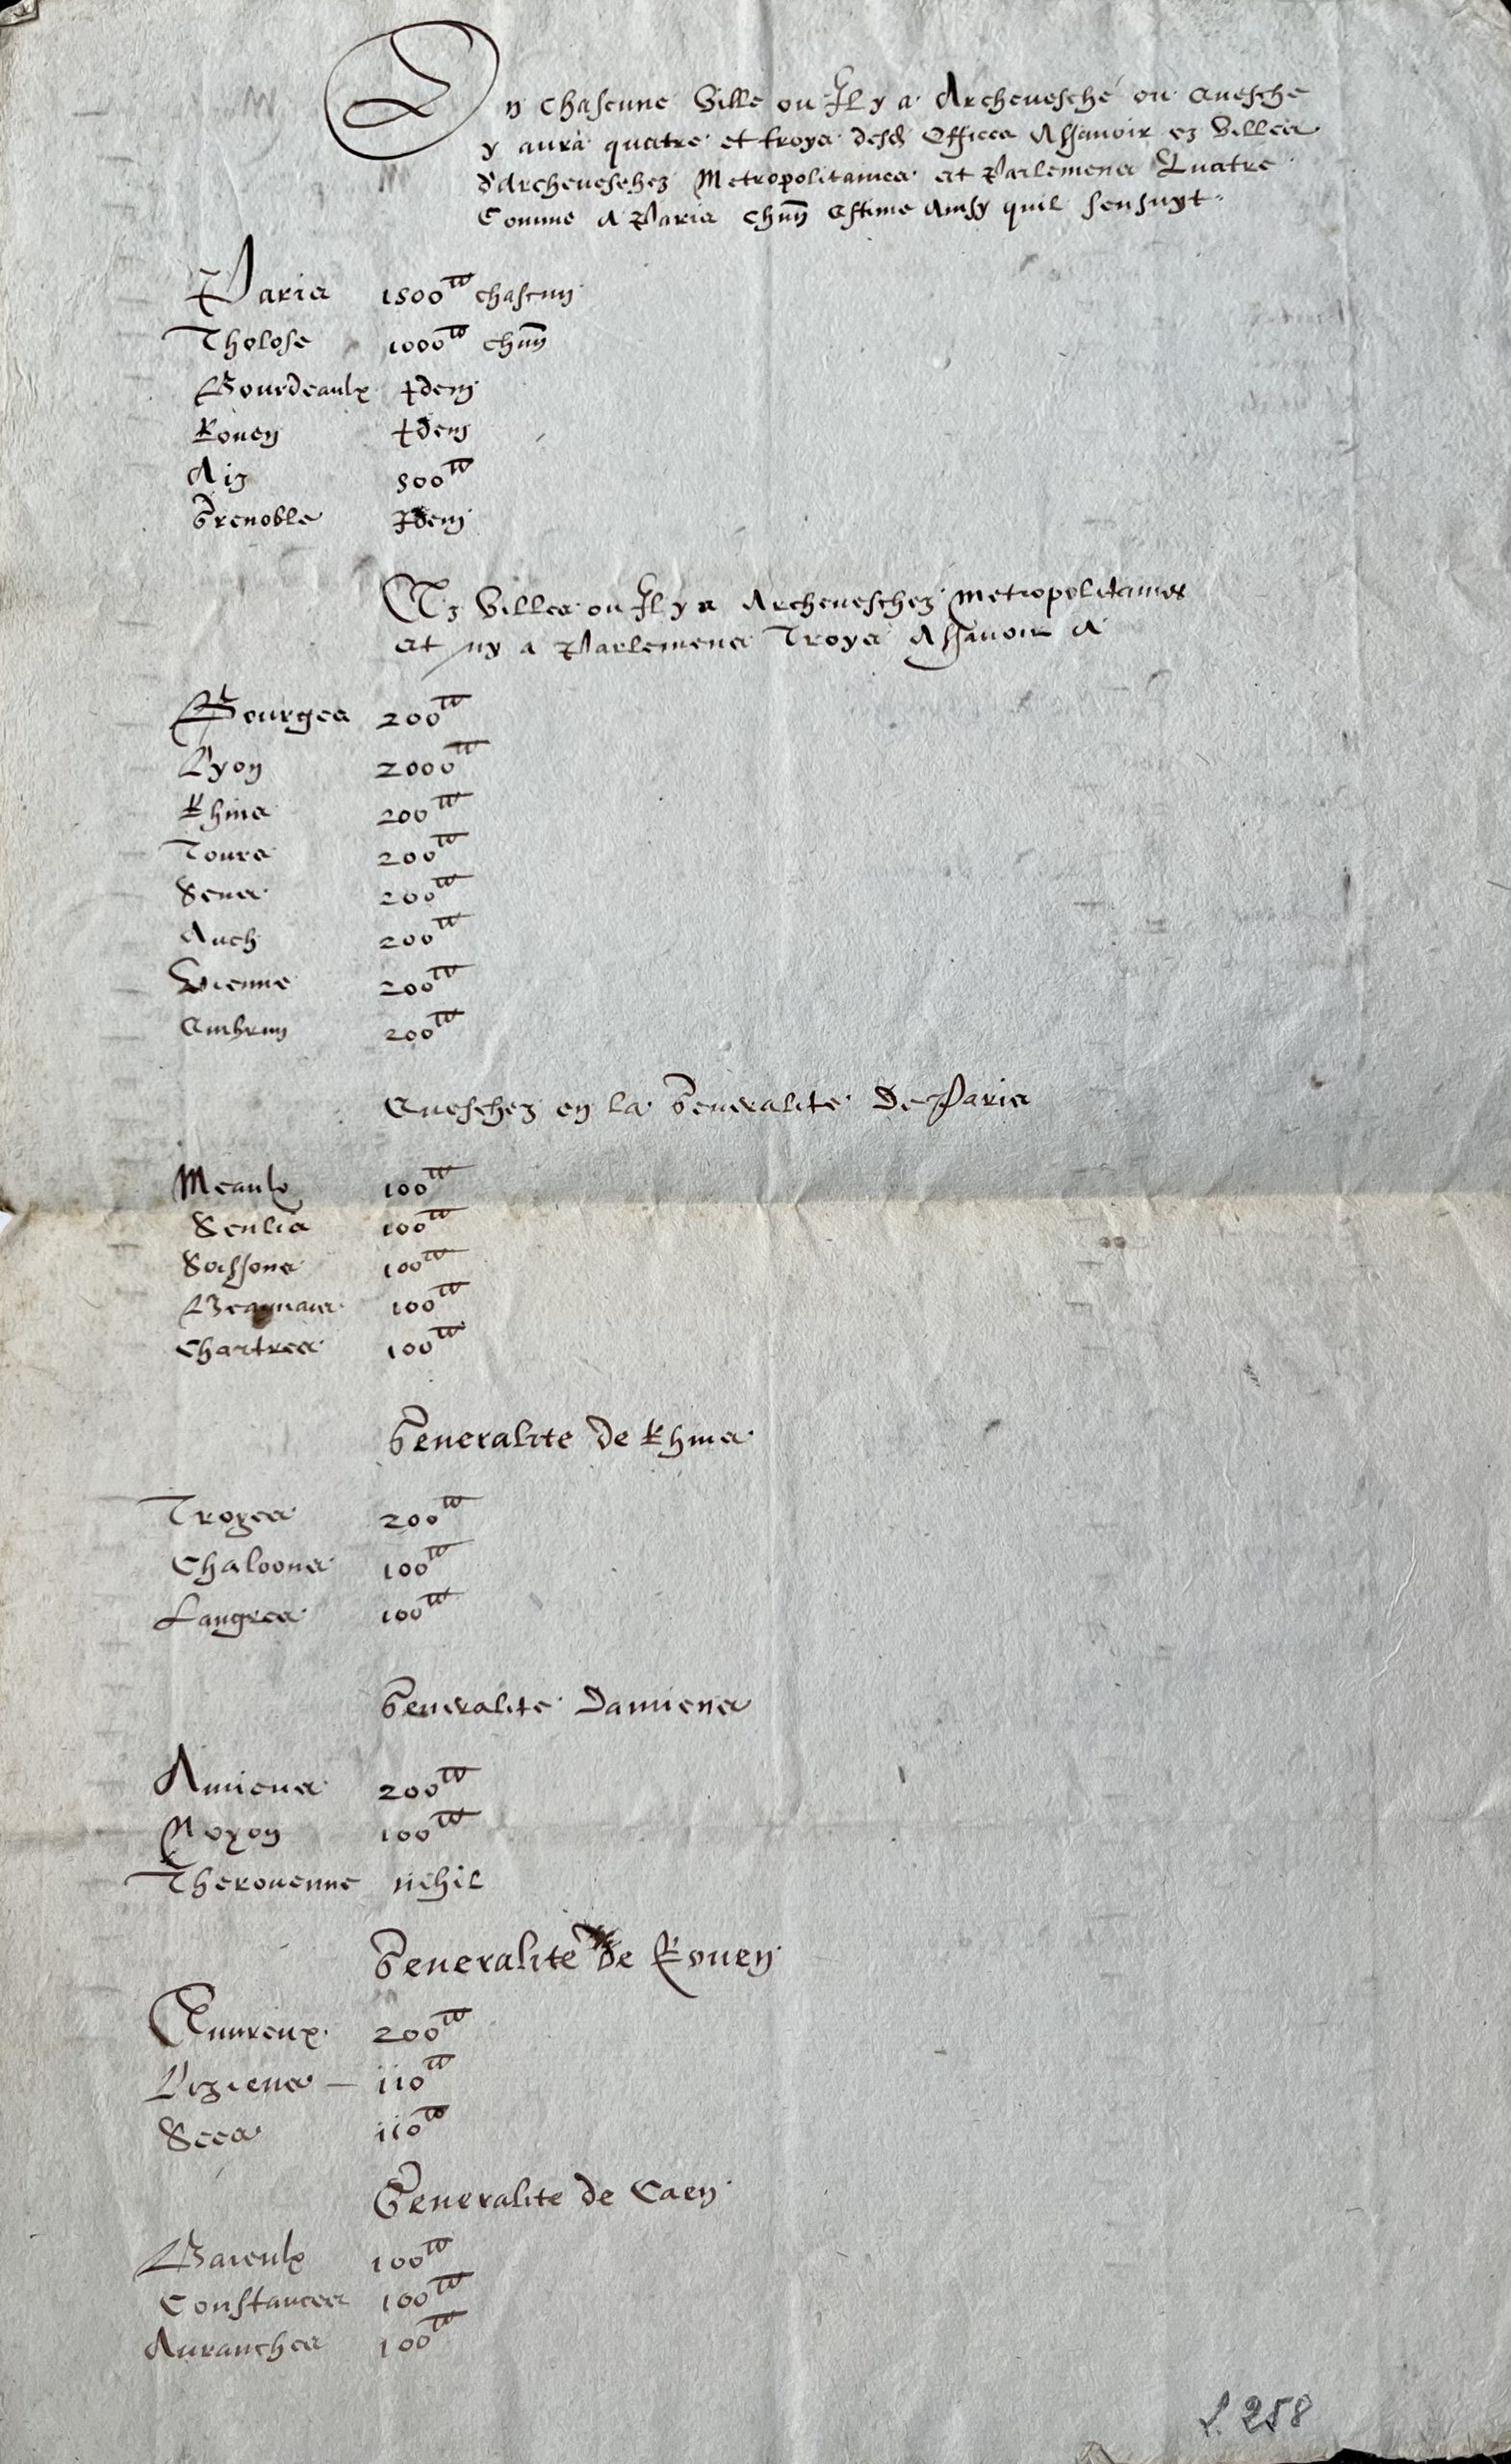 En chascune Ville ou Il y a Archevesché ou evesche
y aura quatre et troys desd Offices Assavoir ez Villes
d'Archeveschez Metropolitaines et Parlemens Quatre
Comme a Paris chũn estime Ainsy quil sensuyt
Paris 1500lt chascun
Tholose 1000lt chũn
Bourdeaulx Idem
Rouen Idem
Aix 500lt
Grenoble Idem
Ez Villes ou Il y a Archeveschez metropolitaines
et ny a Parlemens Troys Assavoir A
Bourges 200lt
Lyon 2000lt
Rhins 200lt
Tours 200lt
Sens 200lt
Auch 200lt
Vienne 200lt
Ambrun 200lt
Eveschez en la Generalite De Paris
Meaulx 100lt
Senlis 100lt
Soissons 100lt
Beauvais 100lt
Chartres 100lt
Generalite de Rhins
Troyes 200lt
Chaloons 100lt
Langres 100lt
Generalite Damiens
Amiens 200lt
Noyon 100lt
Therouenne nihil
Generalite de Rouen
Evvreux 200lt
Lizieux 110lt
Sees 110lt
Generalite de Caen
Baieulx 100lt
Constances 100lt
Avranches 100lt
258